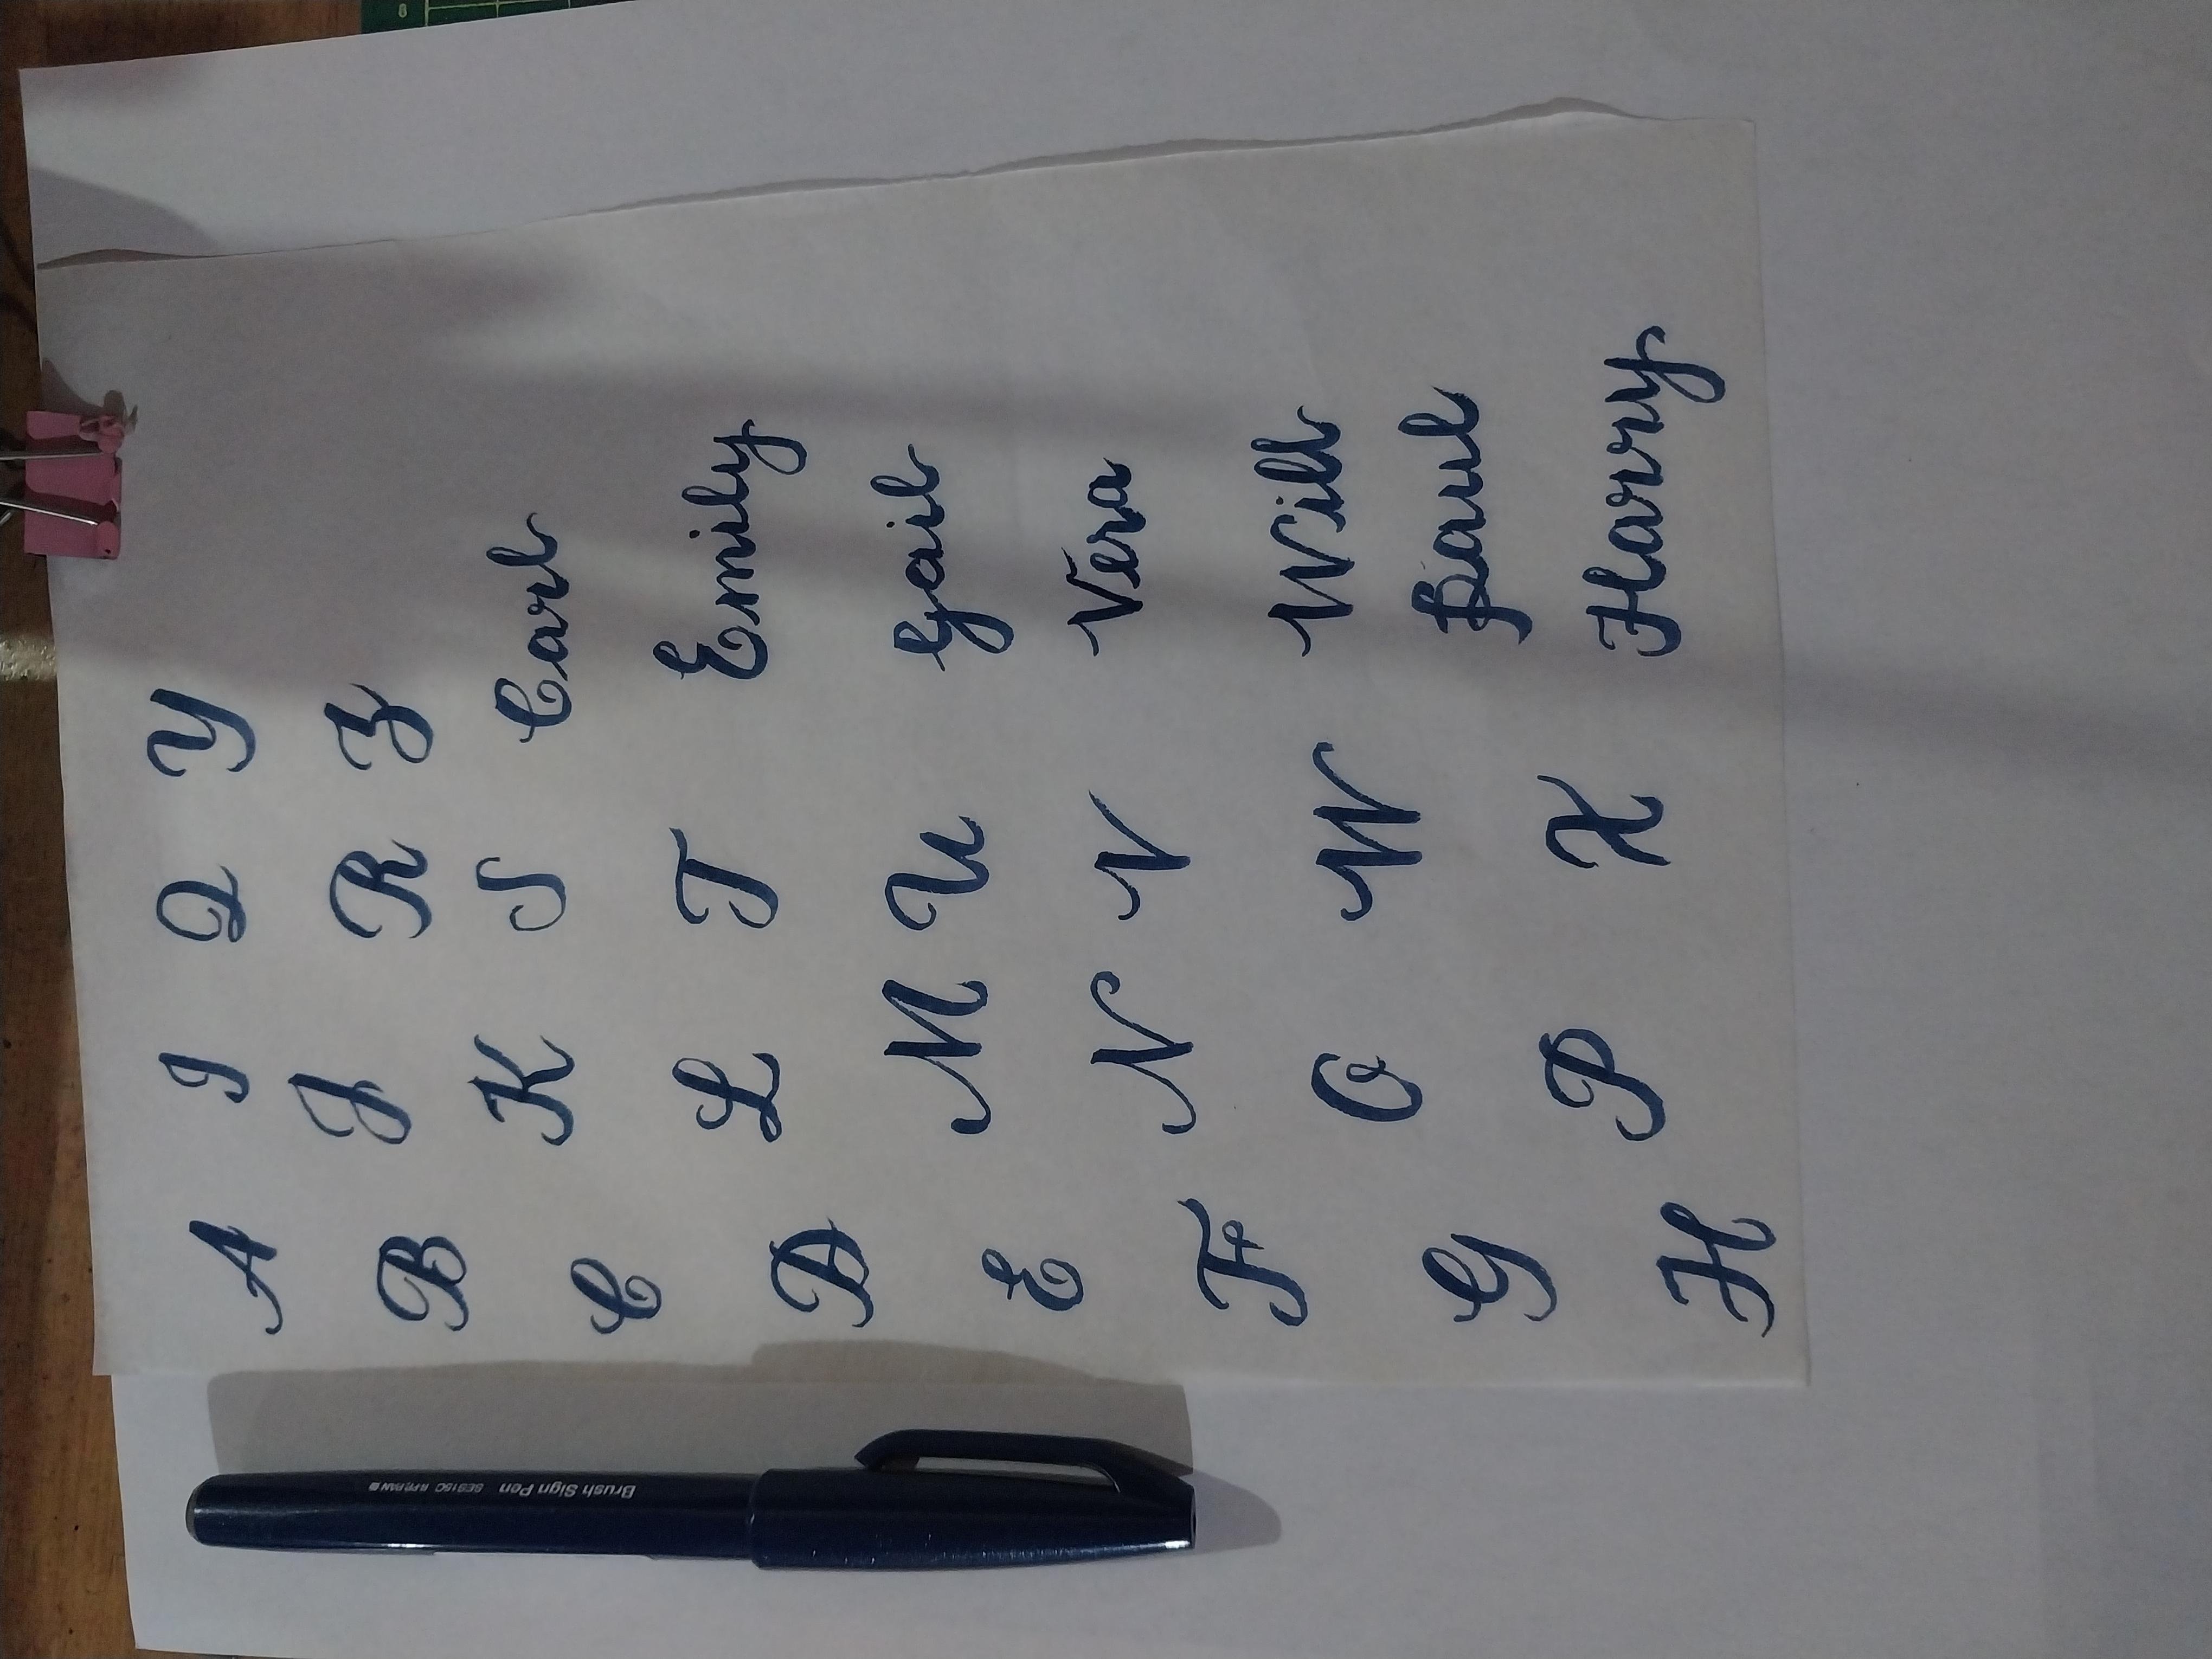 A I Q Y
B J R Z
C K S Carl
D L T Emily
E M U Gail
F N V Vera
G O W Will
Paul
H P X Harry
Brush Sign Pen SES15C
8